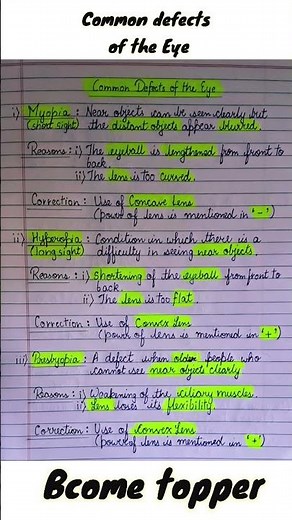 Common defects
of the Eye
Common Defects of the Eye
i) Myopia : Near objects can be seen clearly but
(short sight) the distant objects appear blurred.
Reasons : i) The eyeball is lengthened from front to
back.
ii) The lens is too curved.
Correction : Use of Concave Lens
(power of lens is mentioned in '-')
ii) Hyperopia : Condition in which there is a
(long sight) difficulty in seeing near objects.
Reasons : i) Shortening of the eyeball from front to
back.
ii) The lens is too flat.
Correction : Use of Convex Lens
(power of lens is mentioned in '+')
iii) Presbyopia : A defect when older people who
cannot see near objects clearly.
Reasons : i) Weakening of the ciliary muscles.
ii) Lens loses its flexibility.
Correction : Use of Convex Lens
(power of lens is mentioned in '+')
Bcome topper